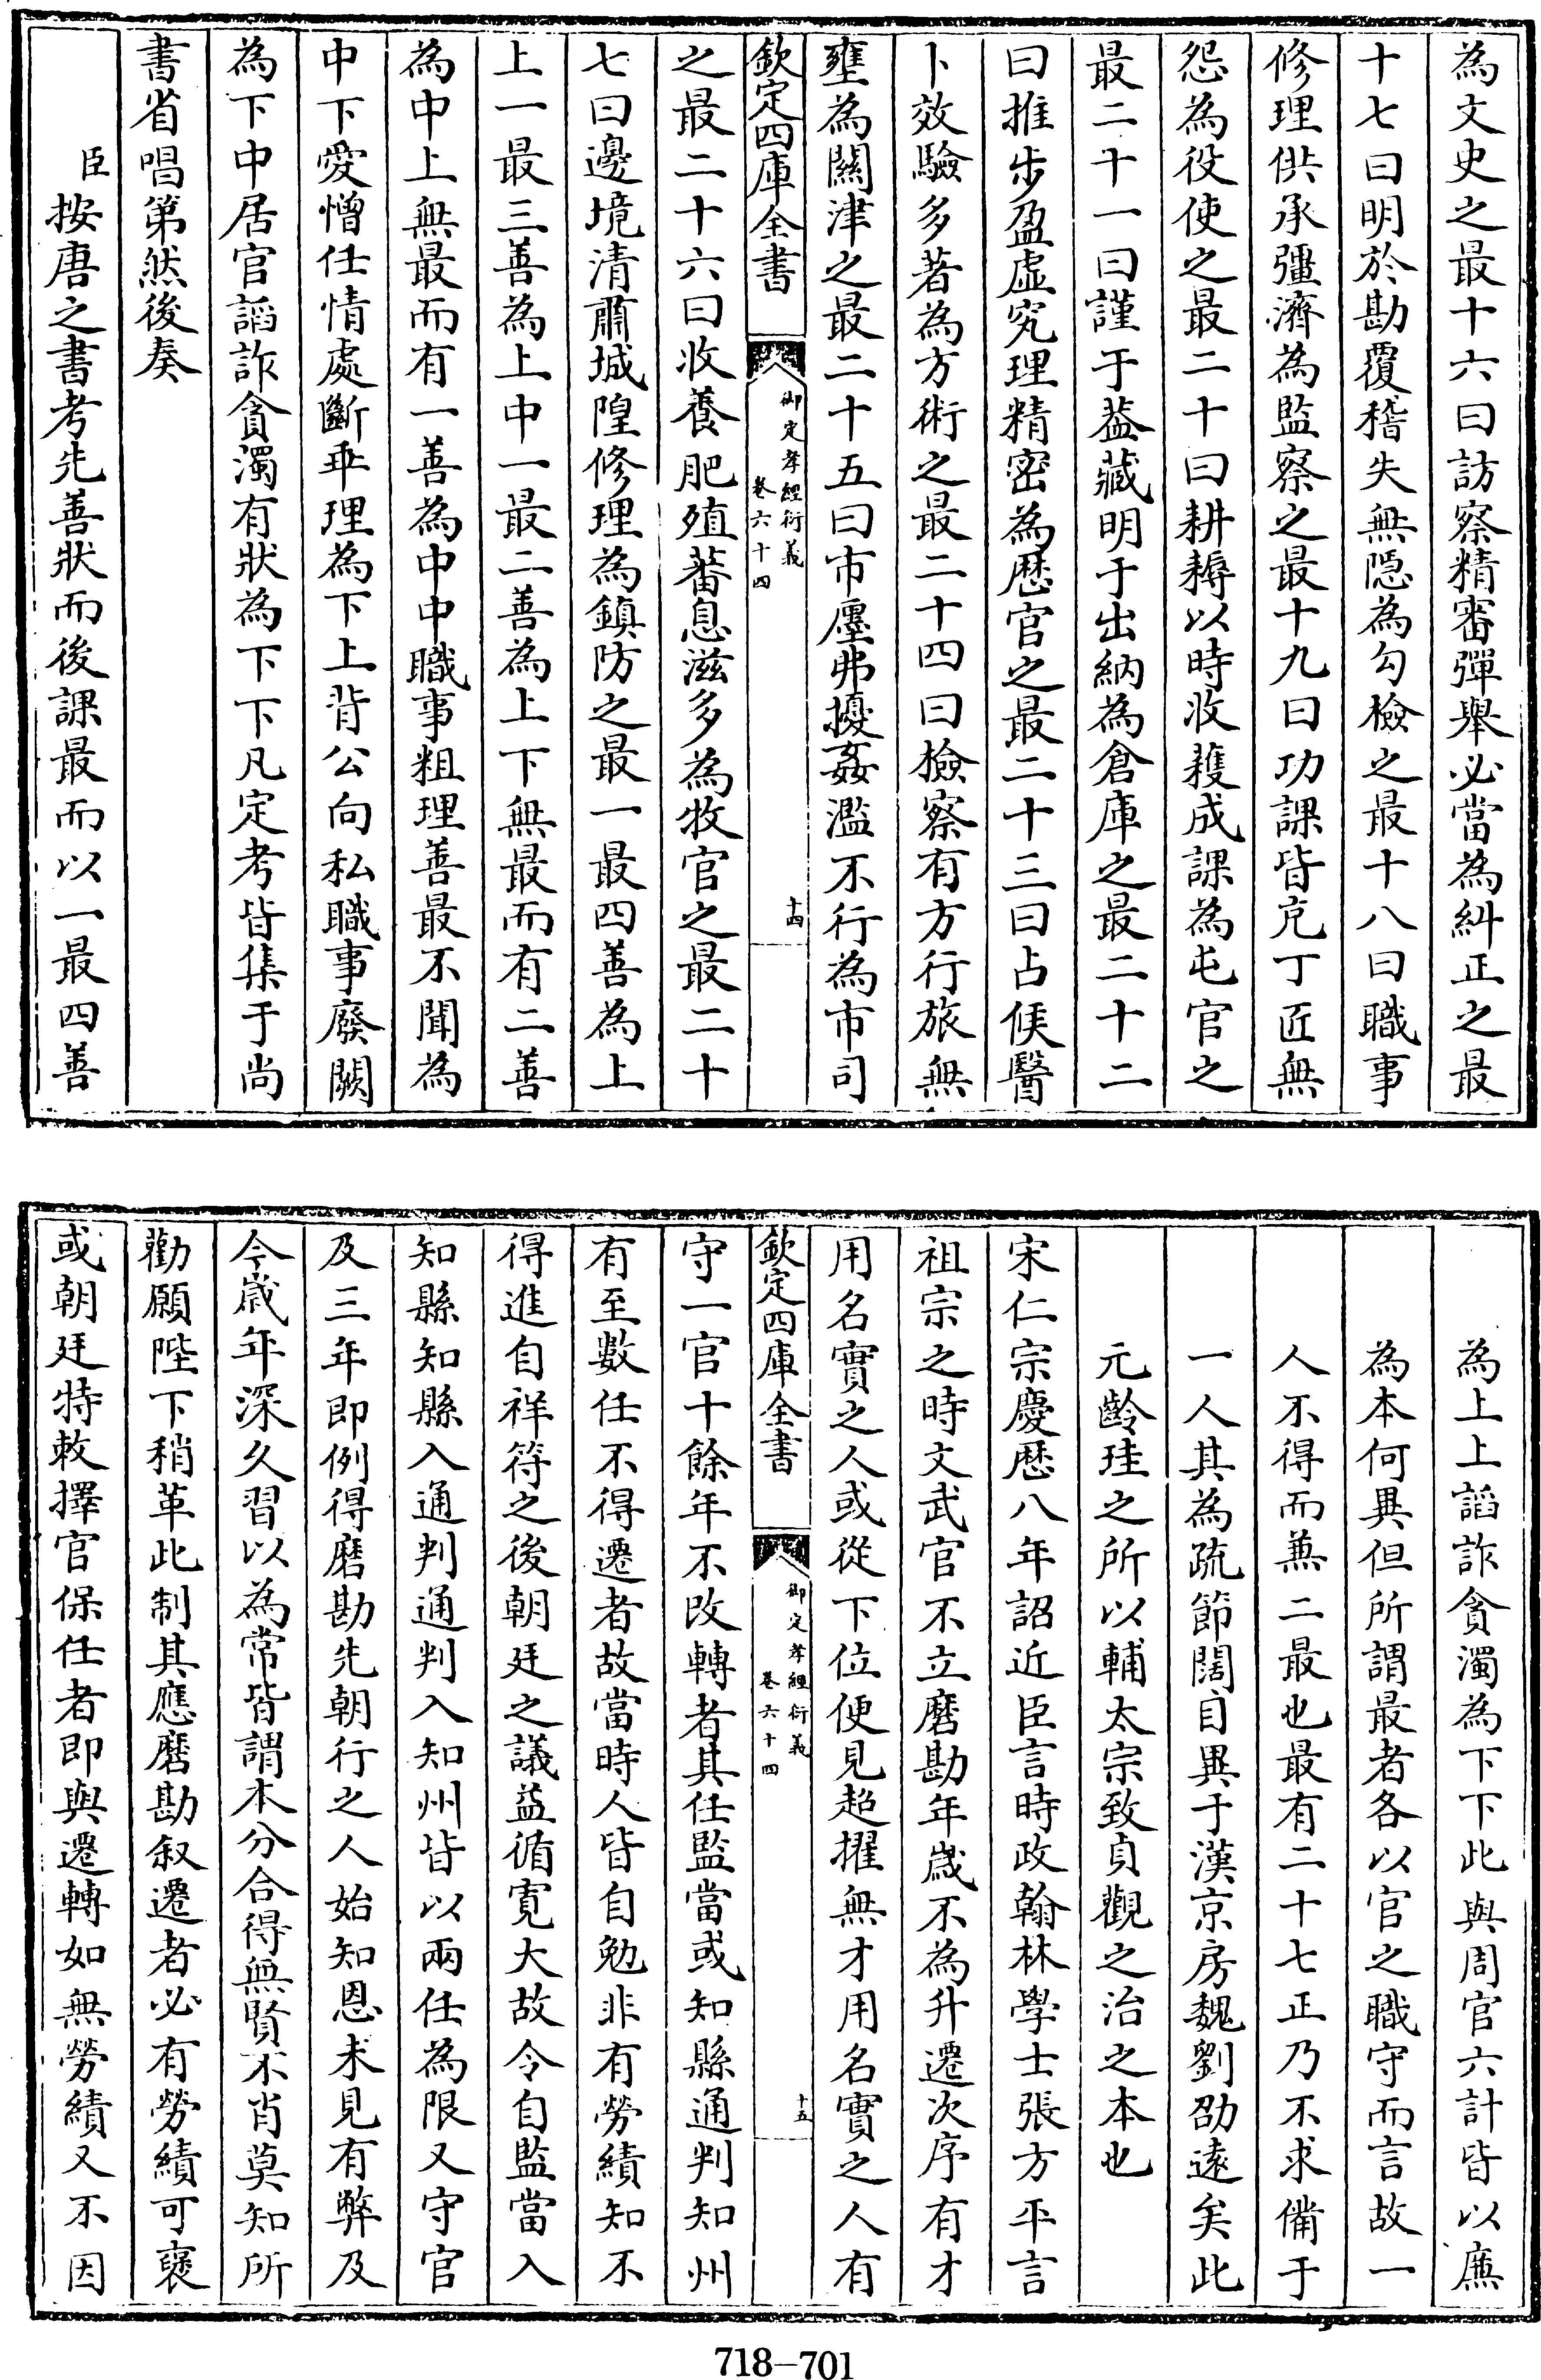 為文史之最十六曰訪察精審彈舉必當為糾正之最
十七曰明於勘覆稽失無隱為勾檢之最十八曰職事
修理供承彊濟為監察之最十九曰功課皆充丁匠無
怨為役使之最二十曰耕耨以時收穫成課為屯官之
最二十一曰謹于葢藏明于出納為倉庫之最二十二
曰推步盈虛究理精密為歴官之最二十三曰占候醫
卜效驗多著為方術之最二十四曰檢察有方行旅無
壅為關津之最二十五曰市廛弗擾姦濫不行為市司
欽定四庫全書
御定孝經衍義
卷六十四
十四
之最二十六曰收養肥殖蕃息滋多為牧官之最二十
七曰邊境清肅城隍修理為鎮防之最一最四善為上
上一最三善為上中一最二善為上下無最而有二善
為中上無最而有一善為中中職事粗理善最不聞為
中下愛憎任情處斷乖理為下上背公向私職事廢闕
為下中居官謟詐貪濁有狀為下下凡定考皆集于尚
書省唱第然後奏
臣按唐之書考先善狀而後課最而以一最四善
為上上謟詐貪濁為下下此與周官六計皆以廉
為本何異但所謂最者各以官之職守而言故一
人不得而兼二最也最有二十七正乃不求備于
一人其為疏節闊目異于漢京房魏劉劭遠矣此
元齡珪之所以輔太宗致貞觀之治之本也
宋仁宗慶歴八年詔近臣言時政翰林學士張方平言
祖宗之時文武官不立磨勘年歲不為升遷次序有才
用名實之人或從下位便見超擢無才用名實之人有
欽定四庫全書
御定孝經衍義
卷六十四
十五
守一官十餘年不改轉者其任監當或知縣通判知州
有至數任不得遷者故當時人皆自勉非有勞績知不
得進自祥符之後朝廷之議益循寛大故令自監當入
知縣知縣入通判通判入知州皆以兩任為限又守官
及三年即例得磨勘先朝行之人始知恩未見有弊及
今歲年深久習以為常皆謂本分合得無賢不肖莫知所
勸願陛下稍革此制其應磨勘叙遷者必有勞績可襃
或朝廷特敕擇官保任者即與遷轉如無勞績又不因
718—701